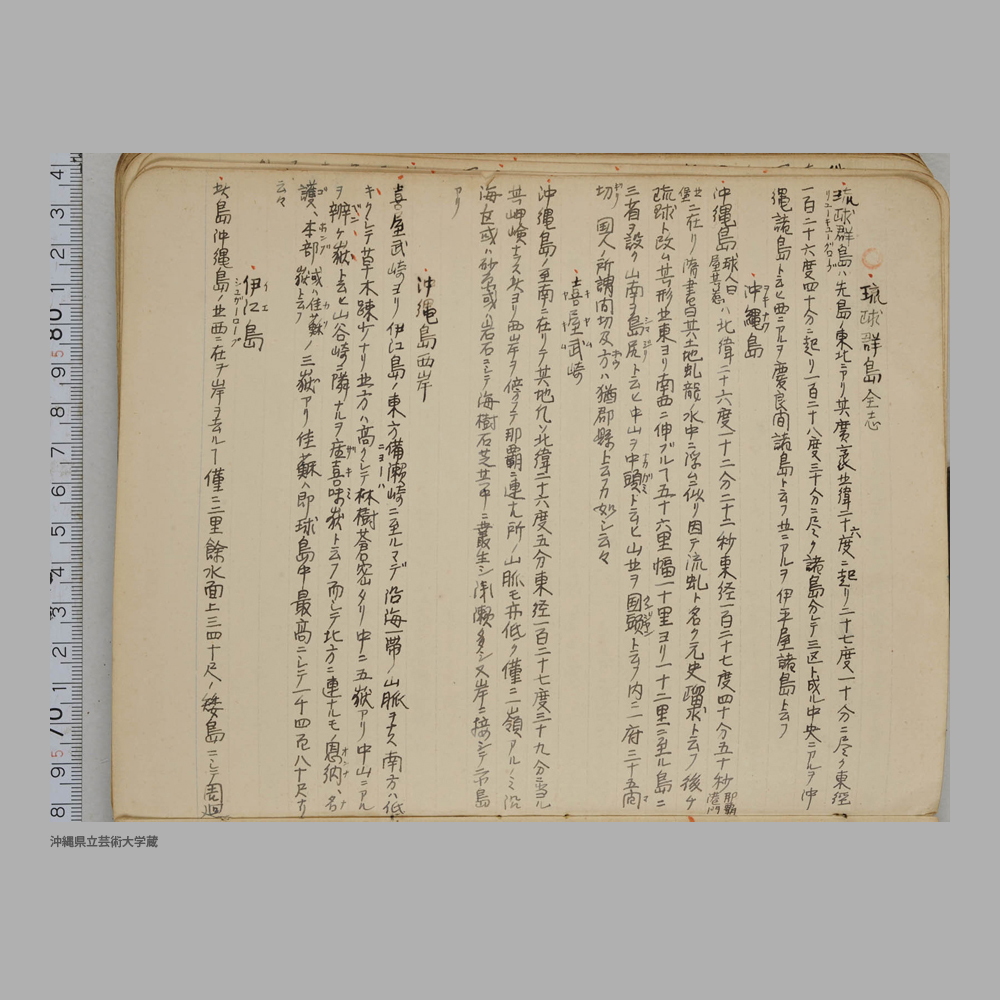 琉球群島全志
琉球群島ハ先島ノ東北ニアリ其廣袤北緯二十六度ニ起リ二十七度一十分ニ尽ク東経
リューキューグローブ
一百二十六度四十分ニ起リ一百二十八度三十分ニ尽ク諸島分レテ三区ト成ル中央ニアルヲ沖
縄諸島ト云ヒ西ニアルヲ慶良間諸島ト云フ北ニアルヲ伊平屋諸島ト云フ
沖縄島
ヲキナワ
沖縄島 球人曰 ハ北緯二十六度一十二分二十二秒東経一百二十七度四十分五十秒 那覇港
ニ在リ隋書曰其土地虬龍水中ニ浮ムニ似リ因テ流虬ト名ク元史瑠求ト云フ後チ
琉球ト改ム其形北東ヨリ南西ニ伸ブルヿ五十六里幅一十里ヨリ一十二里ニ至ル島ニ
三省ヲ設ク山南ヲ島尻ト云ヒ中山ヲ中頭ト云ヒ山北ヲ国頭ト云フ内ニ府三十五間
切 国人ノ所謂間切及方ハ猶郡縣ト云フカ如シ云々
喜屋武崎
キヤム
沖縄島ノ至南ニ在リテ其地凡ソ北緯二十六度五分東経一百二十七度三十九分ニ当ル
其岬嶮ナラス此ヨリ西岸ヲ傍フテ那覇ニ連ナル所ノ山脈モ亦低ク僅ニ一嶺アルノミ沿
海或ハ砂磧或ハ岩石ニシテ海樹石芝其中ニ叢生シ浅瀬多シ又岸ニ接シテ二小島
アリ
沖縄島西岸
喜屋武崎ヨリ伊江島ノ東方備瀬崎ニ至ルマデ沿海一帯ノ山脈ヲナス南方ハ低
キクシテ草木疎少ナリ北方ハ高クシテ林樹蒼密タリ中ニ五嶽アリ中山ニアル
ヲ辨ケ嶽ト云ヒ山谷崎ニ隣ナルヲ座喜味嶽ト云フ而シテ北方ニ連ナルモノ恩納、名
護、本部 或ハ佳蘇嶽ト云フ ノ三嶽アリ佳蘇ハ即球島中最高ニシテ一千四百八十尺ナリ
云々
伊江島
イエ
シュガーローフ
此島沖縄島ノ北西ニ在テ岸ヲ去ルヿ僅ニ三里餘水面上三四十尺ノ矮島ニシテ周廻
沖縄県立芸術大学蔵